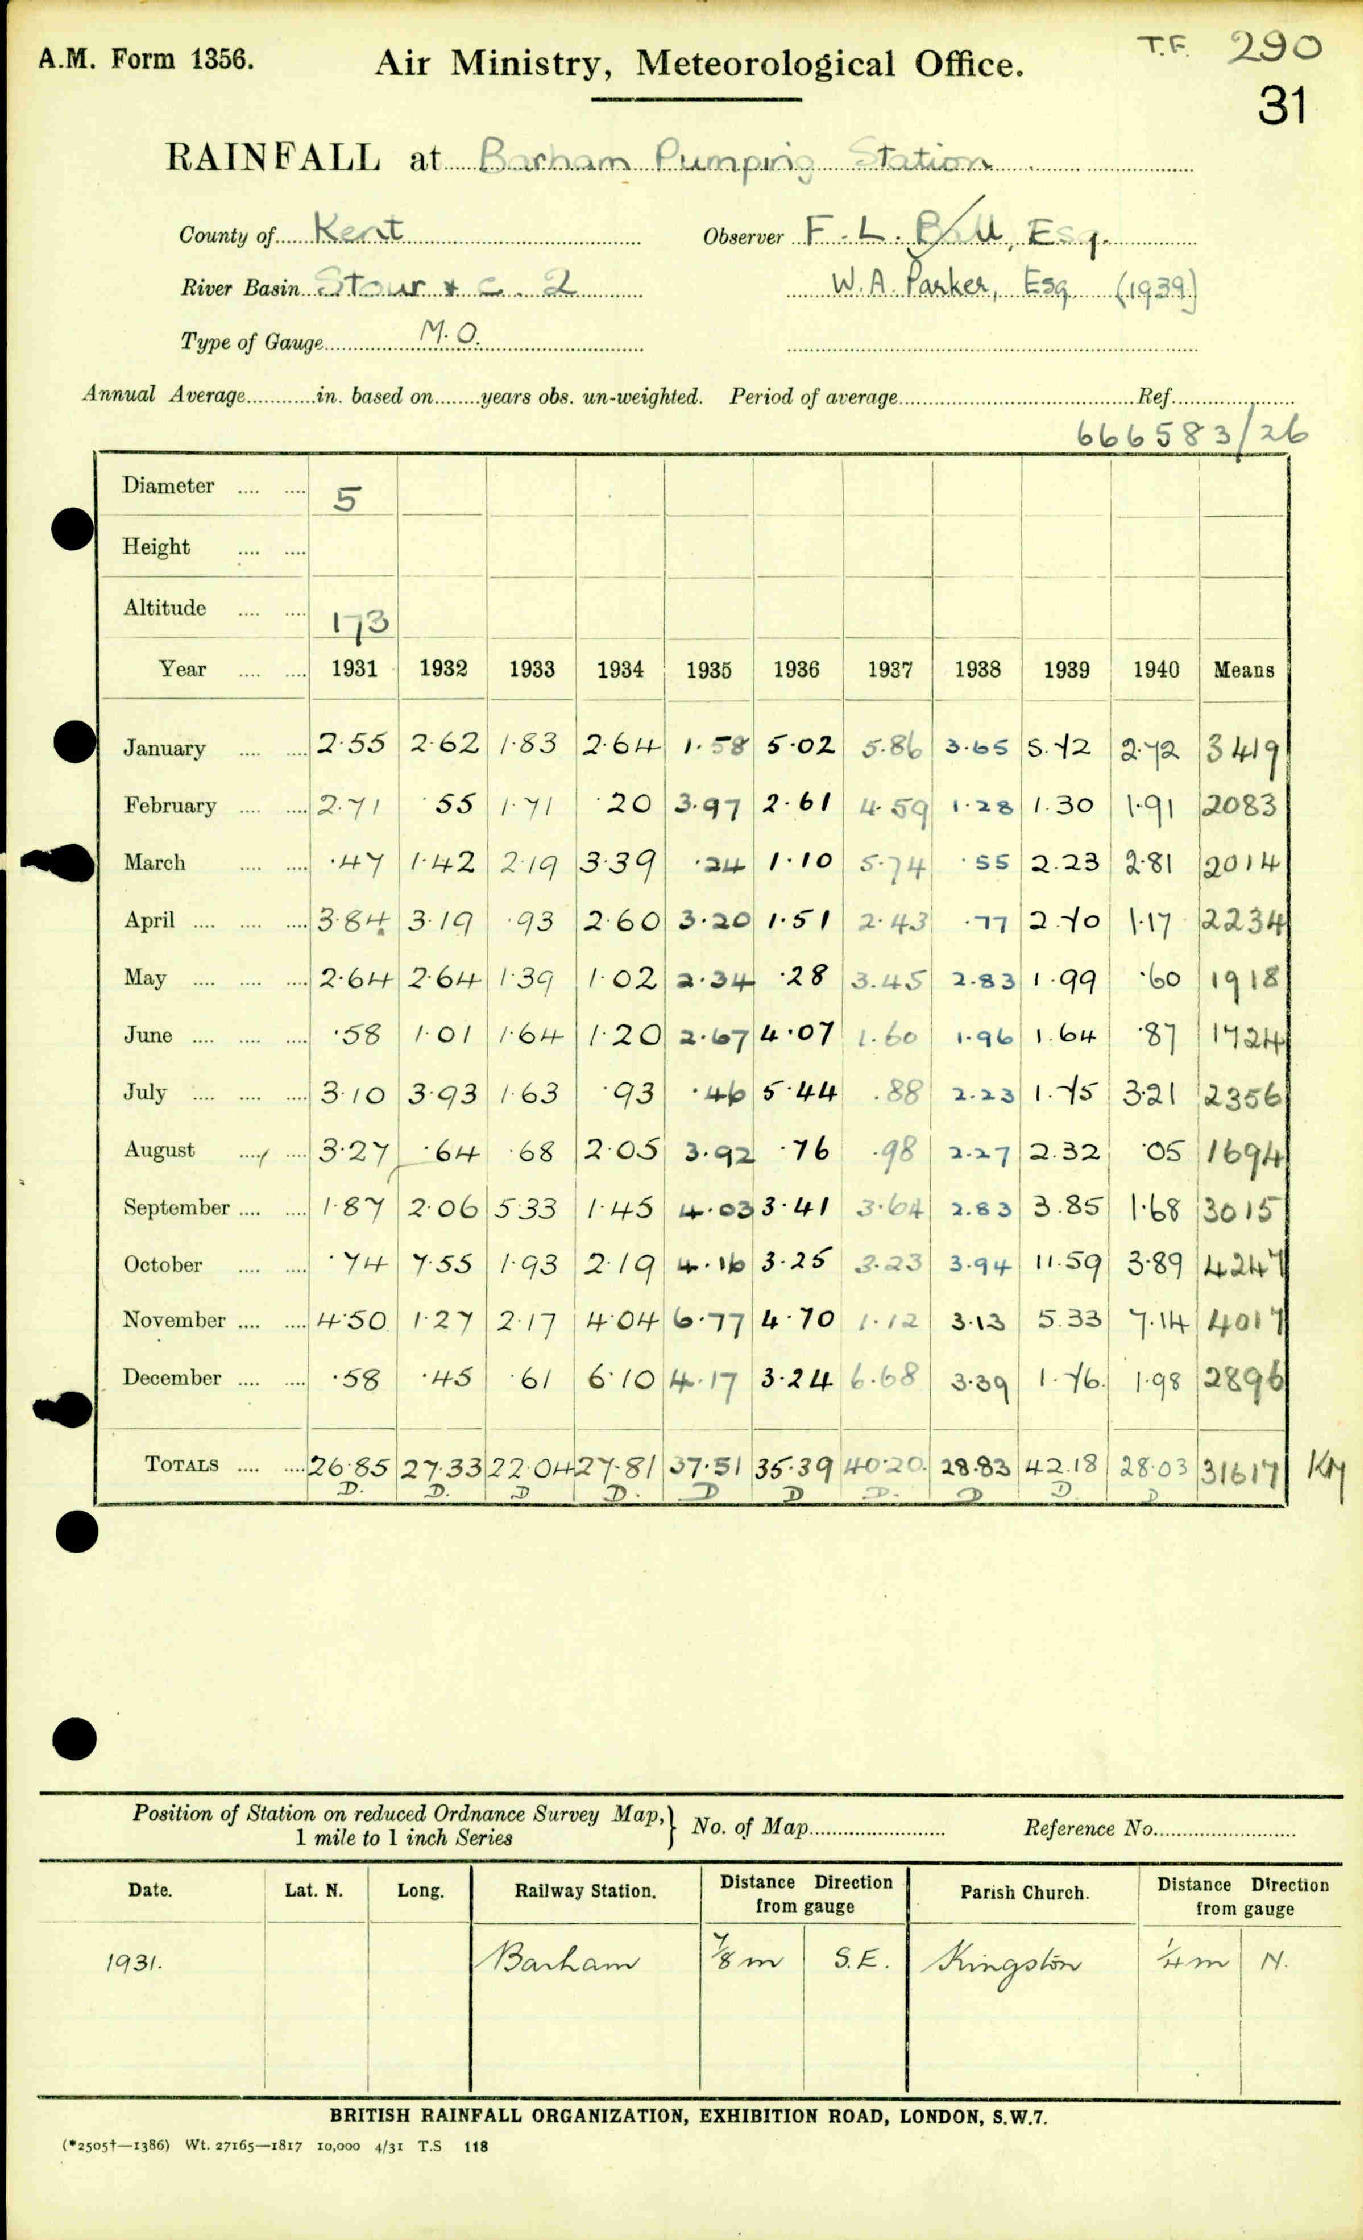 A.M. Form 1356.
Air Ministry, Meteorological Office.
T.F. 290
31
RAINFALL at Barham Pumping Station
County of Kent Observer F. L. Ball, Esq.
River Basin Stour & c. 2 W. A. Parker, Esq (1939)
Type of Gauge M.O.
Annual Average in. based on years obs. un-weighted. Period of average Ref.
666583/26
Diameter 5
Height
Altitude 173
Year 1931 1932 1933 1934 1935 1936 1937 1938 1939 1940 Means
January 2.55 2.62 1.83 2.64 1.58 5.02 5.86 3.65 5.72 2.72 3419
February 2.71 .55 1.71 .20 3.97 2.61 4.59 1.28 1.30 1.91 2083
March .47 1.42 2.19 3.39 .24 1.10 5.74 .55 2.23 2.81 2014
April 3.84 3.19 .93 2.60 3.20 1.51 2.43 .77 2.70 1.17 2234
May 2.64 2.64 1.39 1.02 2.34 .28 3.45 2.83 1.99 .60 1918
June .58 1.01 1.64 1.20 2.67 4.07 1.60 1.96 1.64 .87 1724
July 3.10 3.93 1.63 .93 .46 5.44 .88 2.23 1.75 3.21 2356
August 3.27 .64 .68 2.05 3.92 .76 .98 2.27 2.32 .05 1694
September 1.87 2.06 5.33 1.45 4.03 3.41 3.64 2.83 3.85 1.68 3015
October .74 7.55 1.93 2.19 4.16 3.25 3.23 3.94 11.59 3.89 4247
November 4.50 1.27 2.17 4.04 6.77 4.70 1.12 3.13 5.33 7.14 4017
December .58 .45 .61 6.10 4.17 3.24 6.68 3.39 1.76 1.98 2896
TOTALS 26.85 27.33 22.04 27.81 37.51 35.39 40.20 28.83 42.18 28.03 31617 KM
D. D. D D. D D D. D D. D
Position of Station on reduced Ordnance Survey Map, 1 mile to 1 inch Series No. of Map Reference No.
Date. Lat. N. Long. Railway Station. Distance Direction from gauge Parish Church. Distance Direction from gauge
1931. Barham 7/8 m S.E. Kingston 1/4 m N.
BRITISH RAINFALL ORGANIZATION, EXHIBITION ROAD, LONDON, S.W.7.
(*2505†—1386) Wt. 27165—1817 10,000 4/31 T.S 118